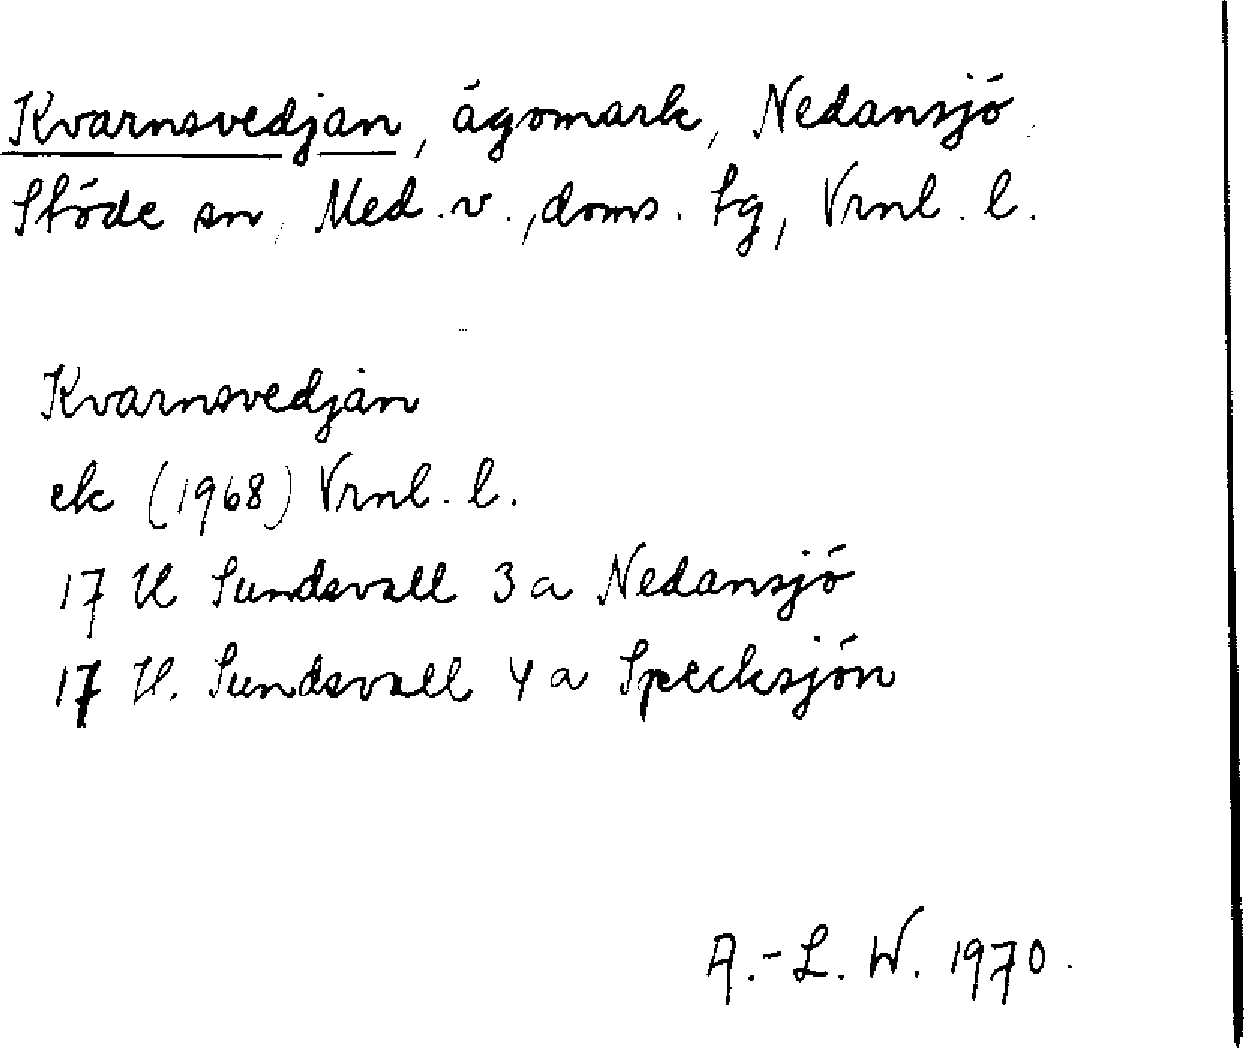 Kvarnsvedjan, ägomark, Nedansjö,
Stöde sn, Med. v., doms. tg, Vrnl. l.
Kvarnsvedjan
ek (1968) Vrnl. l.
17 H Sundsvall 3 a Nedansjö
17 H. Sundsvall 4 a Specksjön
A.-L. W. 1970.